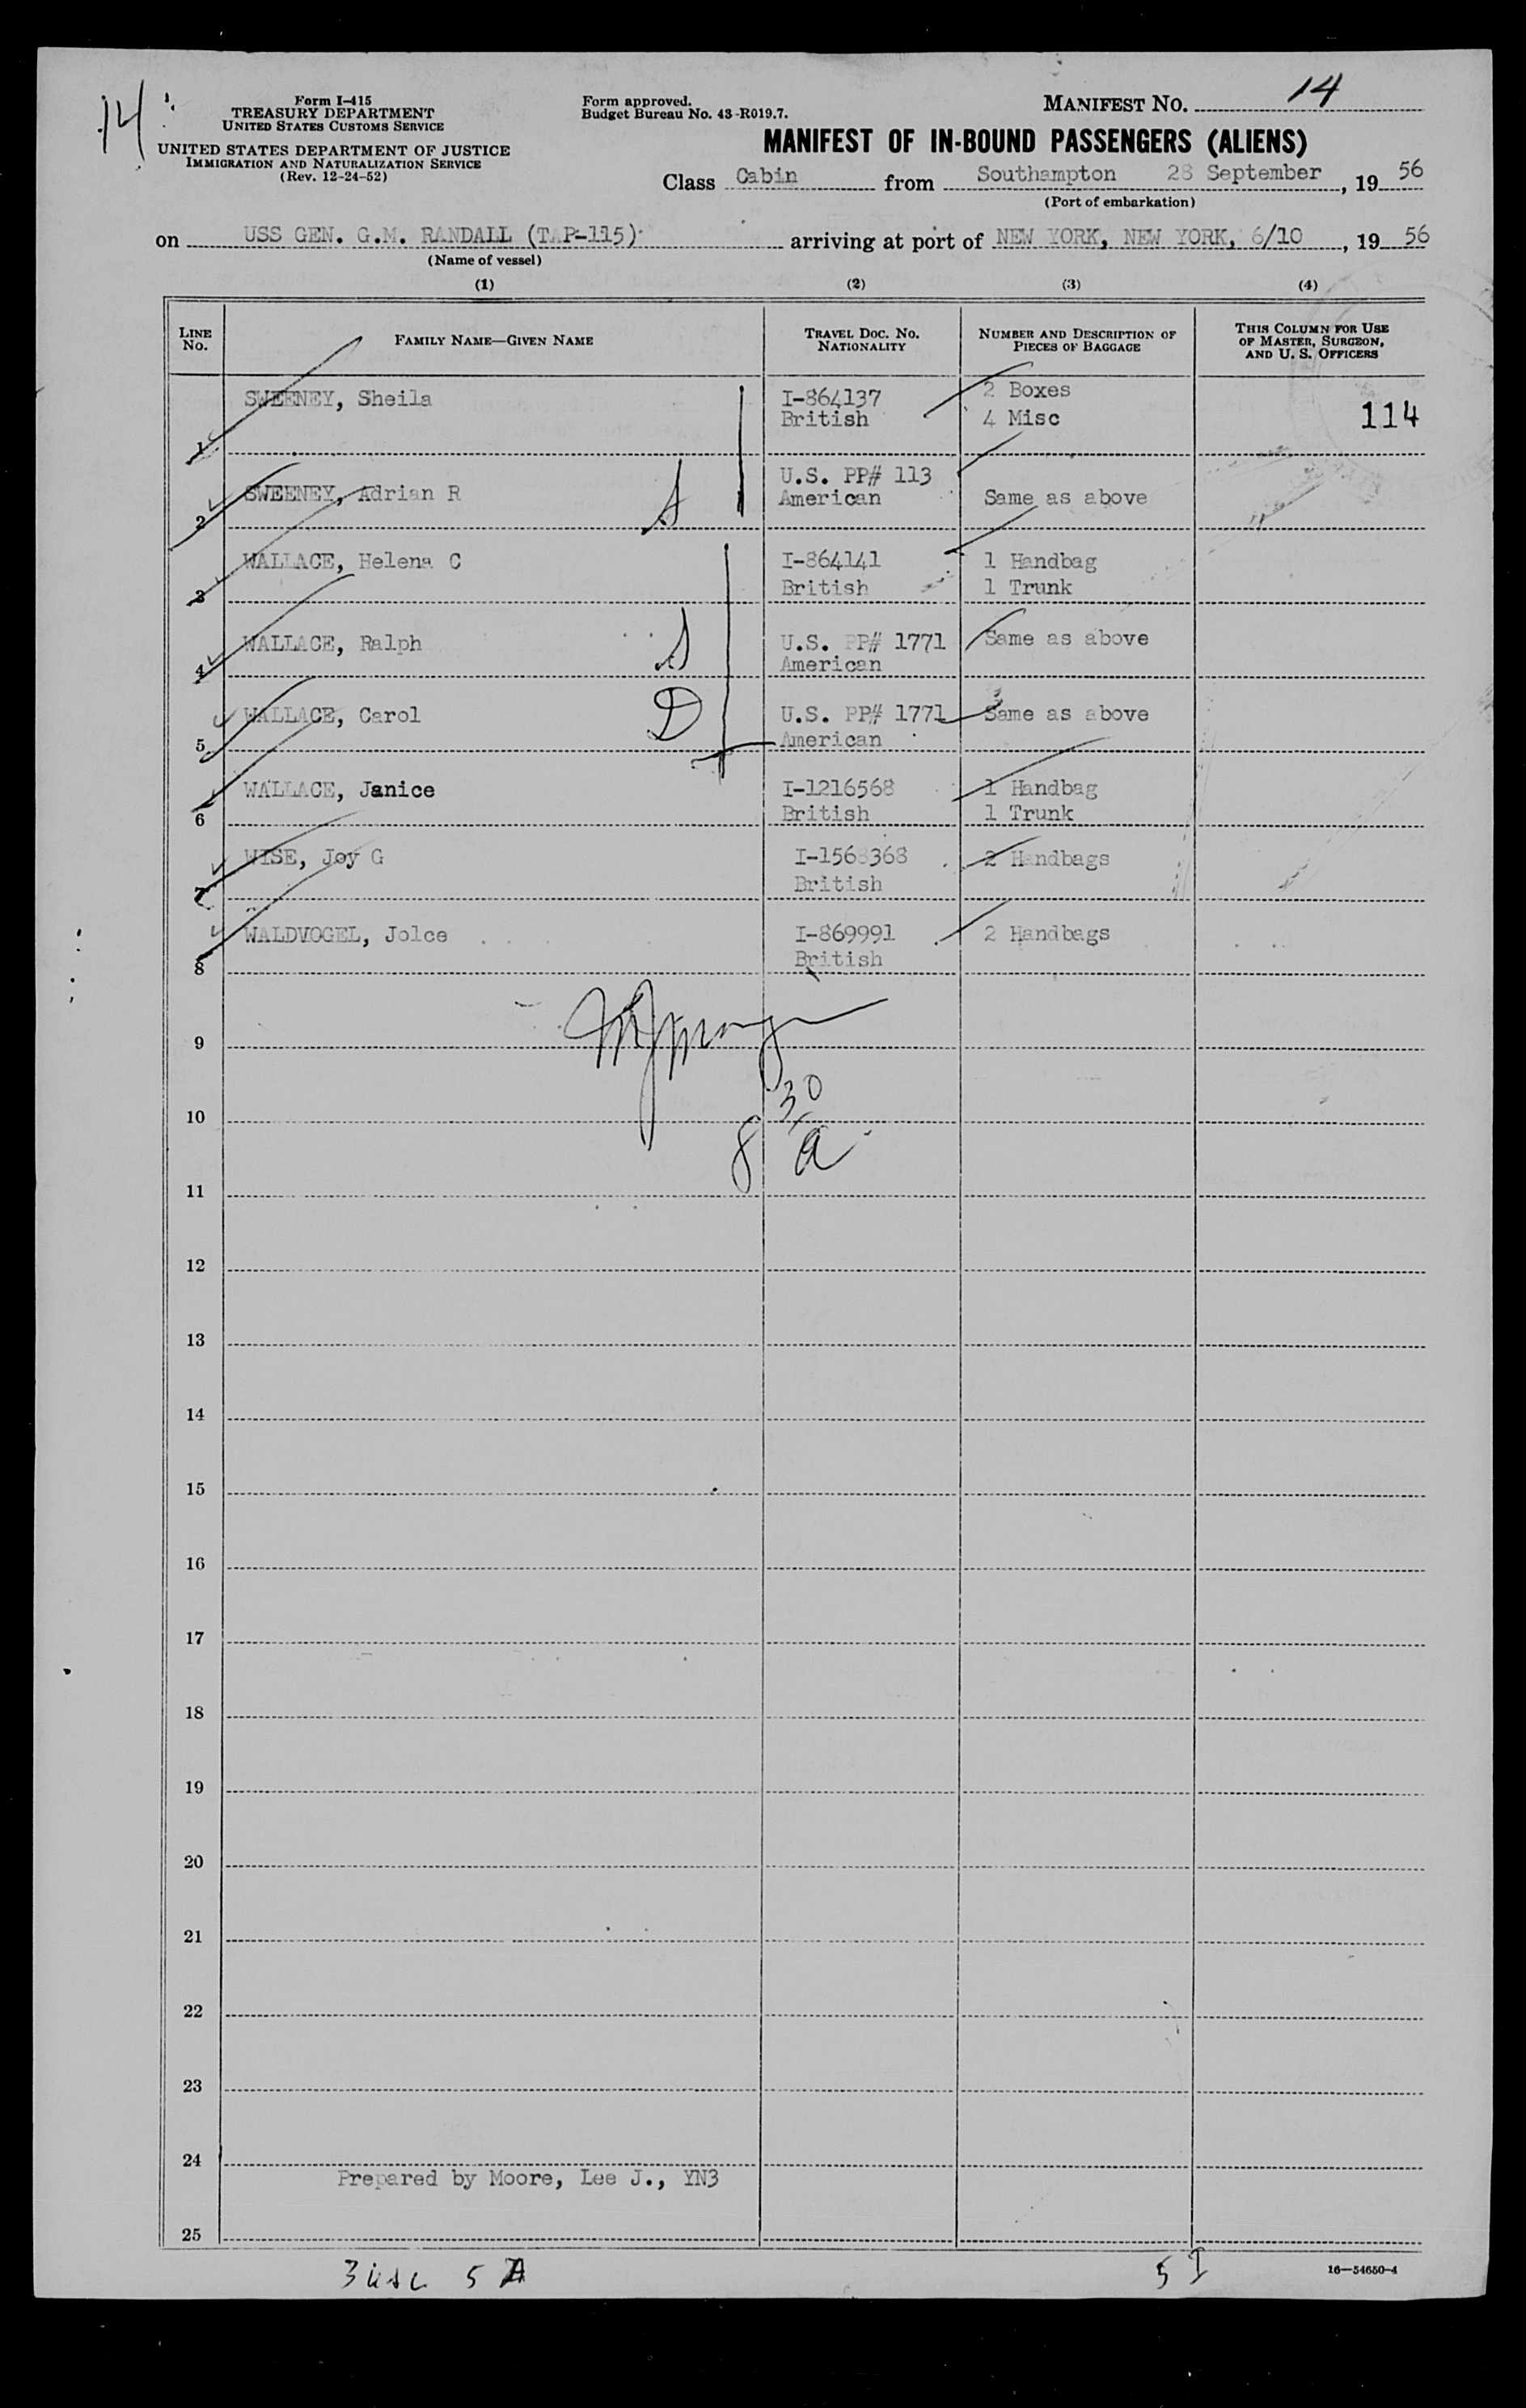 14
Form I-415
TREASURY DEPARTMENT
UNITED STATES CUSTOMS SERVICE
UNITED STATES DEPARTMENT OF JUSTICE
IMMIGRATION AND NATURALIZATION SERVICE
(Rev. 12-24-52)
Form approved.
Budget Bureau No. 43-R019.7.
MANIFEST NO. 14
MANIFEST OF IN-BOUND PASSENGERS (ALIENS)
Class Cabin from Southampton 28 September, 19 56
(Port of embarkation)
on USS GEN. G.M. RANDALL (TAP-115) arriving at port of NEW YORK, NEW YORK, 6/10, 19 56
(Name of vessel)
(1) (2) (3) (4)
LINE NO. FAMILY NAME—GIVEN NAME TRAVEL DOC. NO. NATIONALITY NUMBER AND DESCRIPTION OF PIECES OF BAGGAGE THIS COLUMN FOR USE OF MASTER, SURGEON, AND U. S. OFFICERS
1 SWEENEY, Sheila I-864137 British 2 Boxes 4 Misc 114
2 SWEENEY, Adrian R S U.S. PP# 113 American Same as above
3 WALLACE, Helena C I-864141 British 1 Handbag 1 Trunk
4 WALLACE, Ralph S U.S. PP# 1771 American Same as above
5 WALLACE, Carol D U.S. PP# 1771 American Same as above
6 WALLACE, Janice I-1216568 British 1 Handbag 1 Trunk
7 WISE, Joy G I-1568368 British 2 Handbags
8 WALDVOGEL, Jolce I-869991 British 2 Handbags
9
10
8 30 a
11
12
13
14
15
16
17
18
19
20
21
22
23
24
Prepared by Moore, Lee J., YN3
25
3 usc 5 A 5 I
16—54650-4